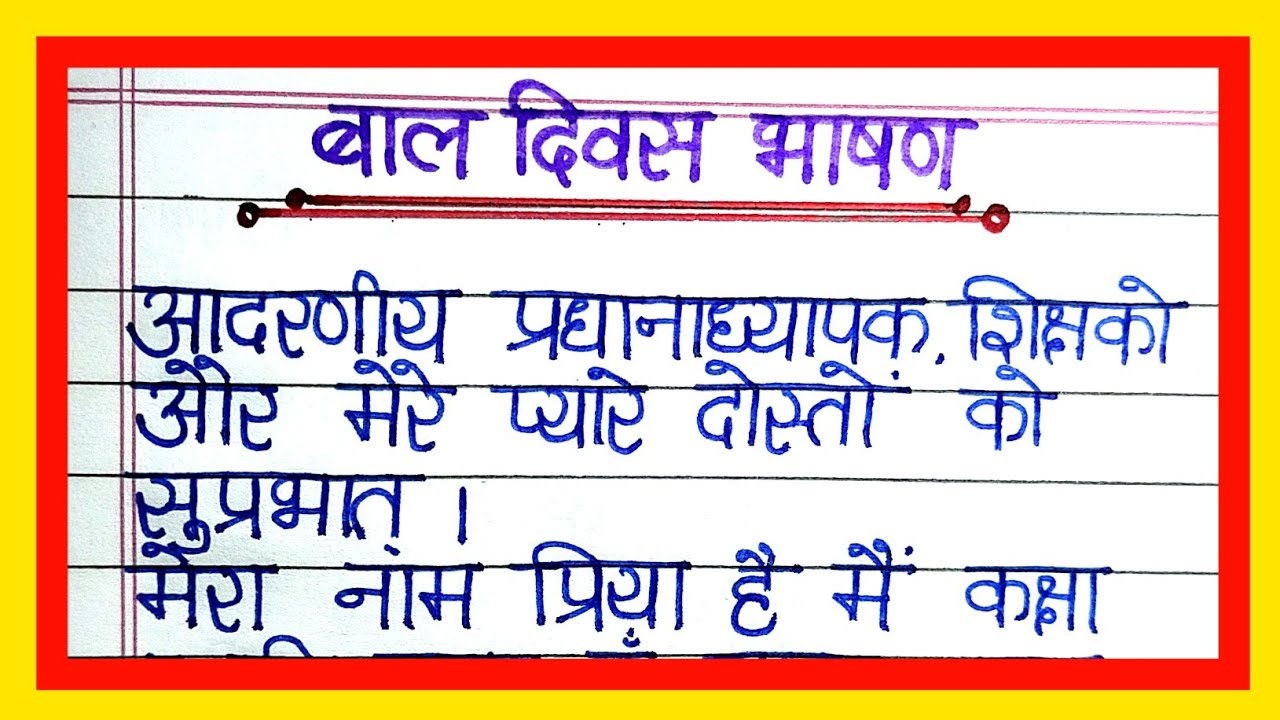 बाल दिवस भाषण
आदरणीय प्रधानाध्यापक, शिक्षको
और मेरे प्यारे दोस्तों को
सुप्रभात् ।
मेरा नाम प्रिया है मैं कक्षा